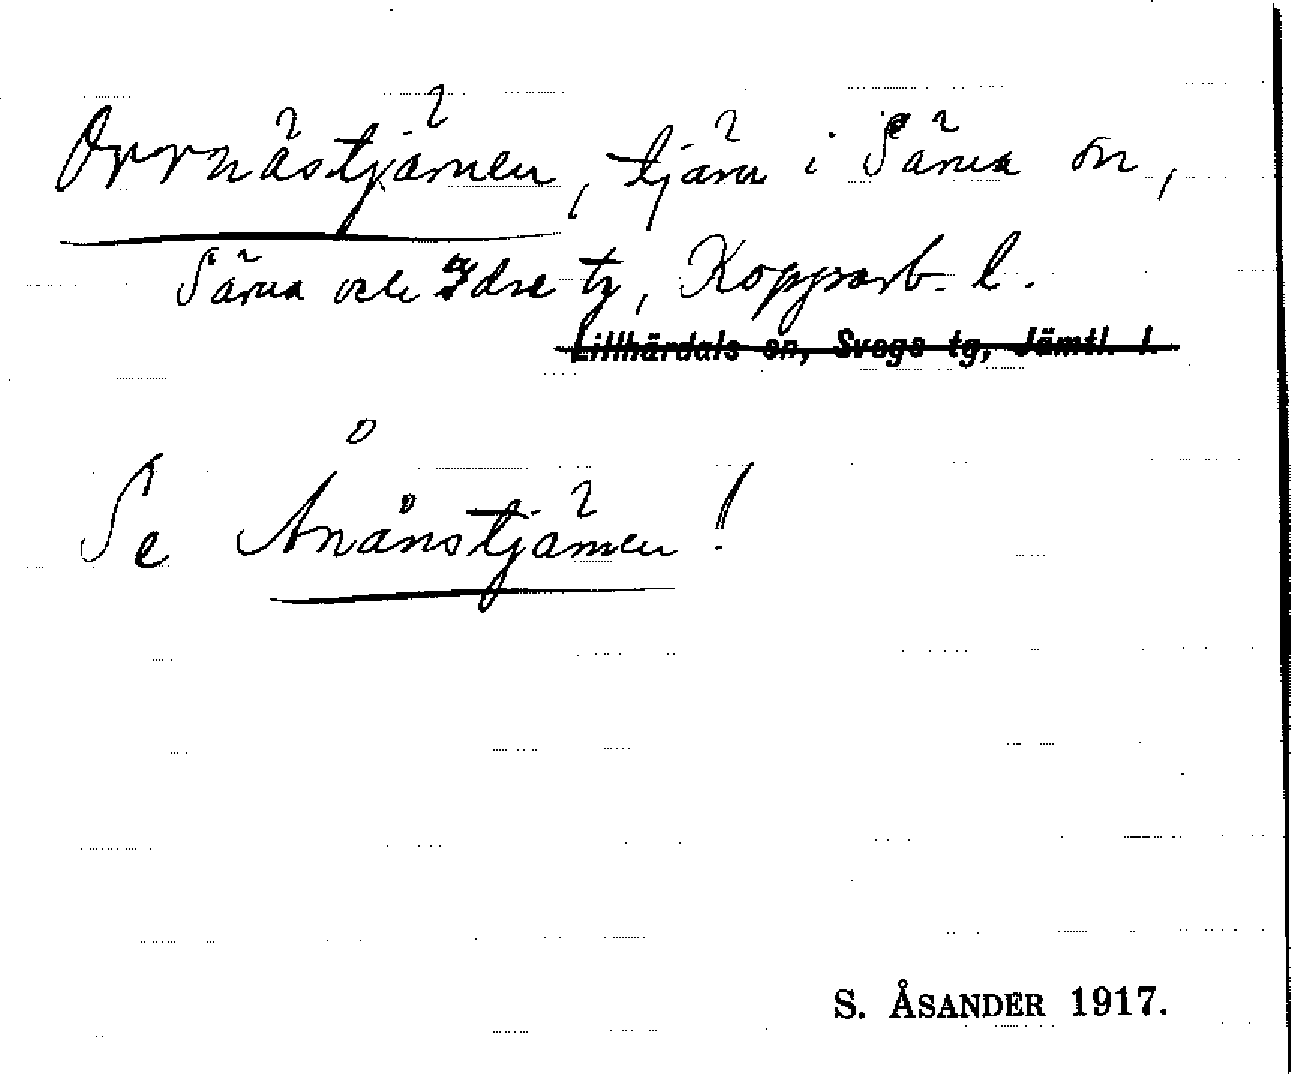 Orrnästjärnen, tjärn i Särna sn,
Särna och Idre tg, Kopparb. l.
Lillhärdals sn, Svegs tg, Jämtl. l.
Se Ånänstjärnen!
S. ÅSANDER 1917.